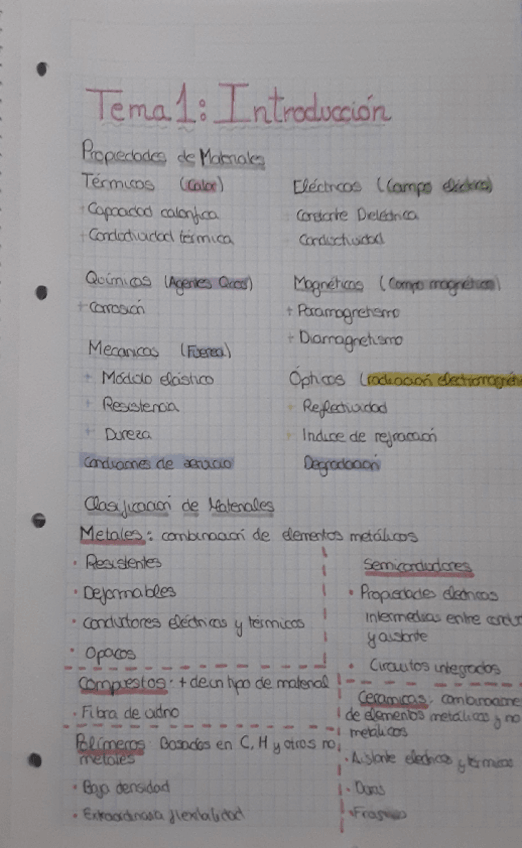 Tema 1: Introducción
Propiedades de Materiales
Térmicas (Calor)
+ Capacidad calorífica
+ Conductividad térmica
Eléctricas (Campo eléctrico)
Constante Dieléctrica
Conductividad
Químicos (Agentes Qcos)
+ Corrosión
Magnéticos (Campo magnético)
+ Paramagnetismo
+ Diamagnetismo
Mecánicos (Fuerza)
+ Módulo elástico
+ Resistencia
+ Dureza
Ópticos (radiación electromagné
- Reflectividad
- Indice de refracción
Condiciones de servicio
Degradación
Clasificación de Materiales
Metales: combinación de elementos metálicos
· Resistentes
· Deformables
· Conductores eléctricos y térmicos
· Opacos
Semiconductores
· Propiedades electricas
Intermedias entre conduc
y aislante
· Circuitos integrados
Compuestos: + de un tipo de material
· Fibra de vidrio
Cerámicas: combinación
de elementos metálicos y no
metálicos
· Aislante electricos y térmicos
· Duros
· Frágiles
Polímeros: Basados en C, H y otros no
metales
· Baja densidad
· Extraordinaria flexibilidad